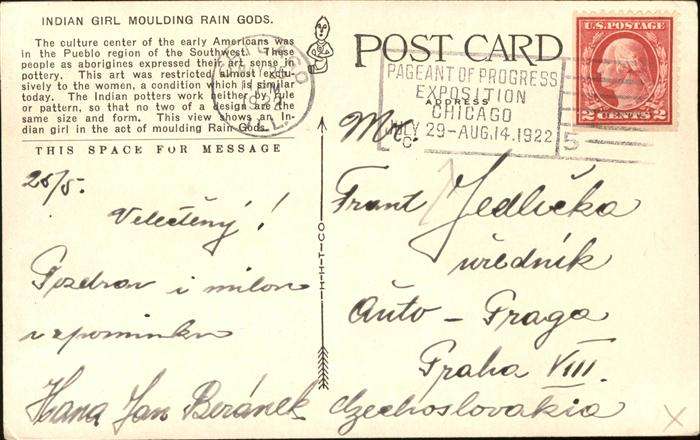 INDIAN GIRL MOULDING RAIN GODS.
The culture center of the early Americans was
in the Pueblo region of the Southwest. These
people as aborigines expressed their art sense in
pottery. This art was restricted almost exclu-
sively to the women, a condition which is similar
today. The Indian potters work neither by rule
or pattern, so that no two of a design are the
same size and form. This view shows an In-
dian girl in the act of moulding Rain Gods.
THIS SPACE FOR MESSAGE
28/5.
Velectěný!
Pozdrav i milou
vzpomínku
Hana Jan Beránek
H-H-T-CO
POST CARD
ADDRESS
U.S. POSTAGE
2 CENTS 2
PAGEANT OF PROGRESS
EXPOSITION
CHICAGO
JULY 29-AUG.14.1922
5
Mr.
Frant Jedlička
úředník
Auto - Praga
Praha VIII.
Czechoslovakia
X